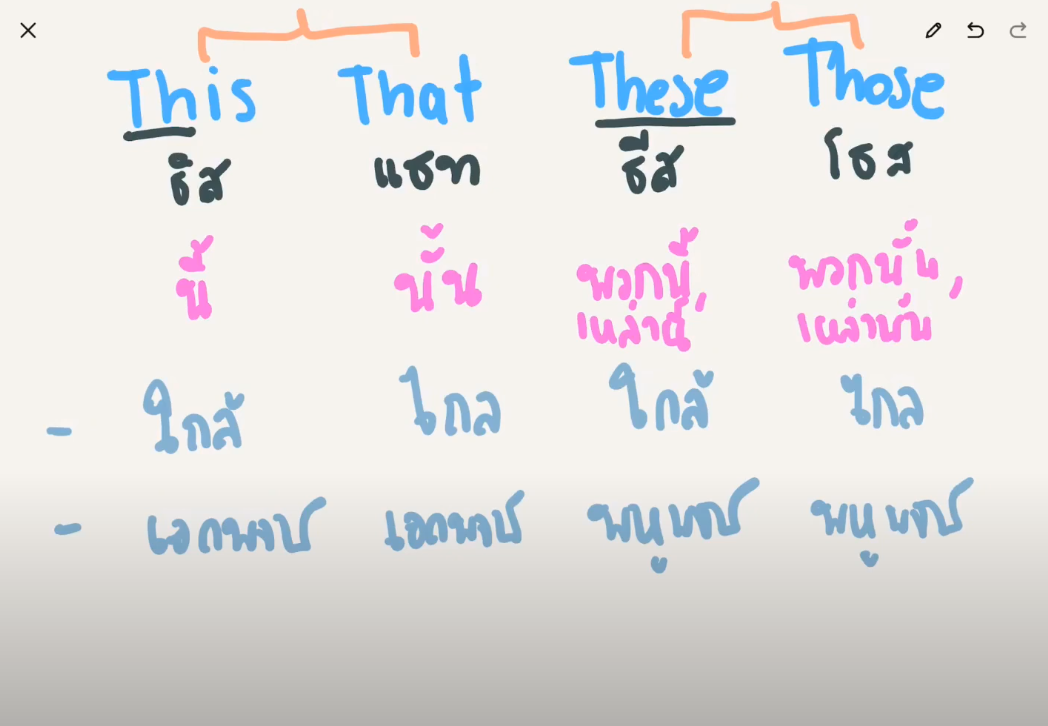 This That These Those
ธิส แธท ธีส โธส
นี้ นั้น พวกนี้, พวกนั้น,
เหล่านี้ เหล่านั้น
- ใกล้ ไกล ใกล้ ไกล
- เอกพจน์ เอกพจน์ พหูพจน์ พหูพจน์